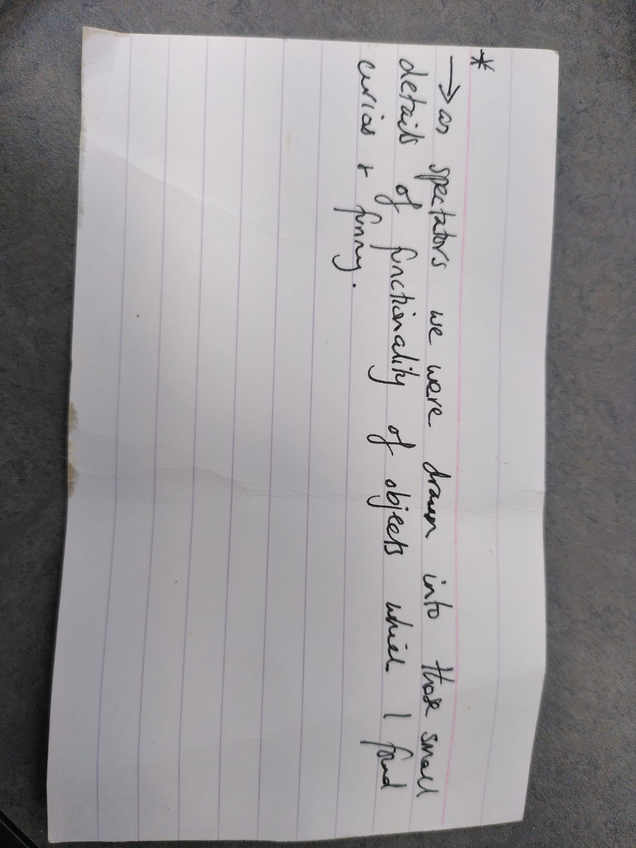 *
→ as spectators we were drawn into those small
details of functionality of objects which I found
curios + funny.